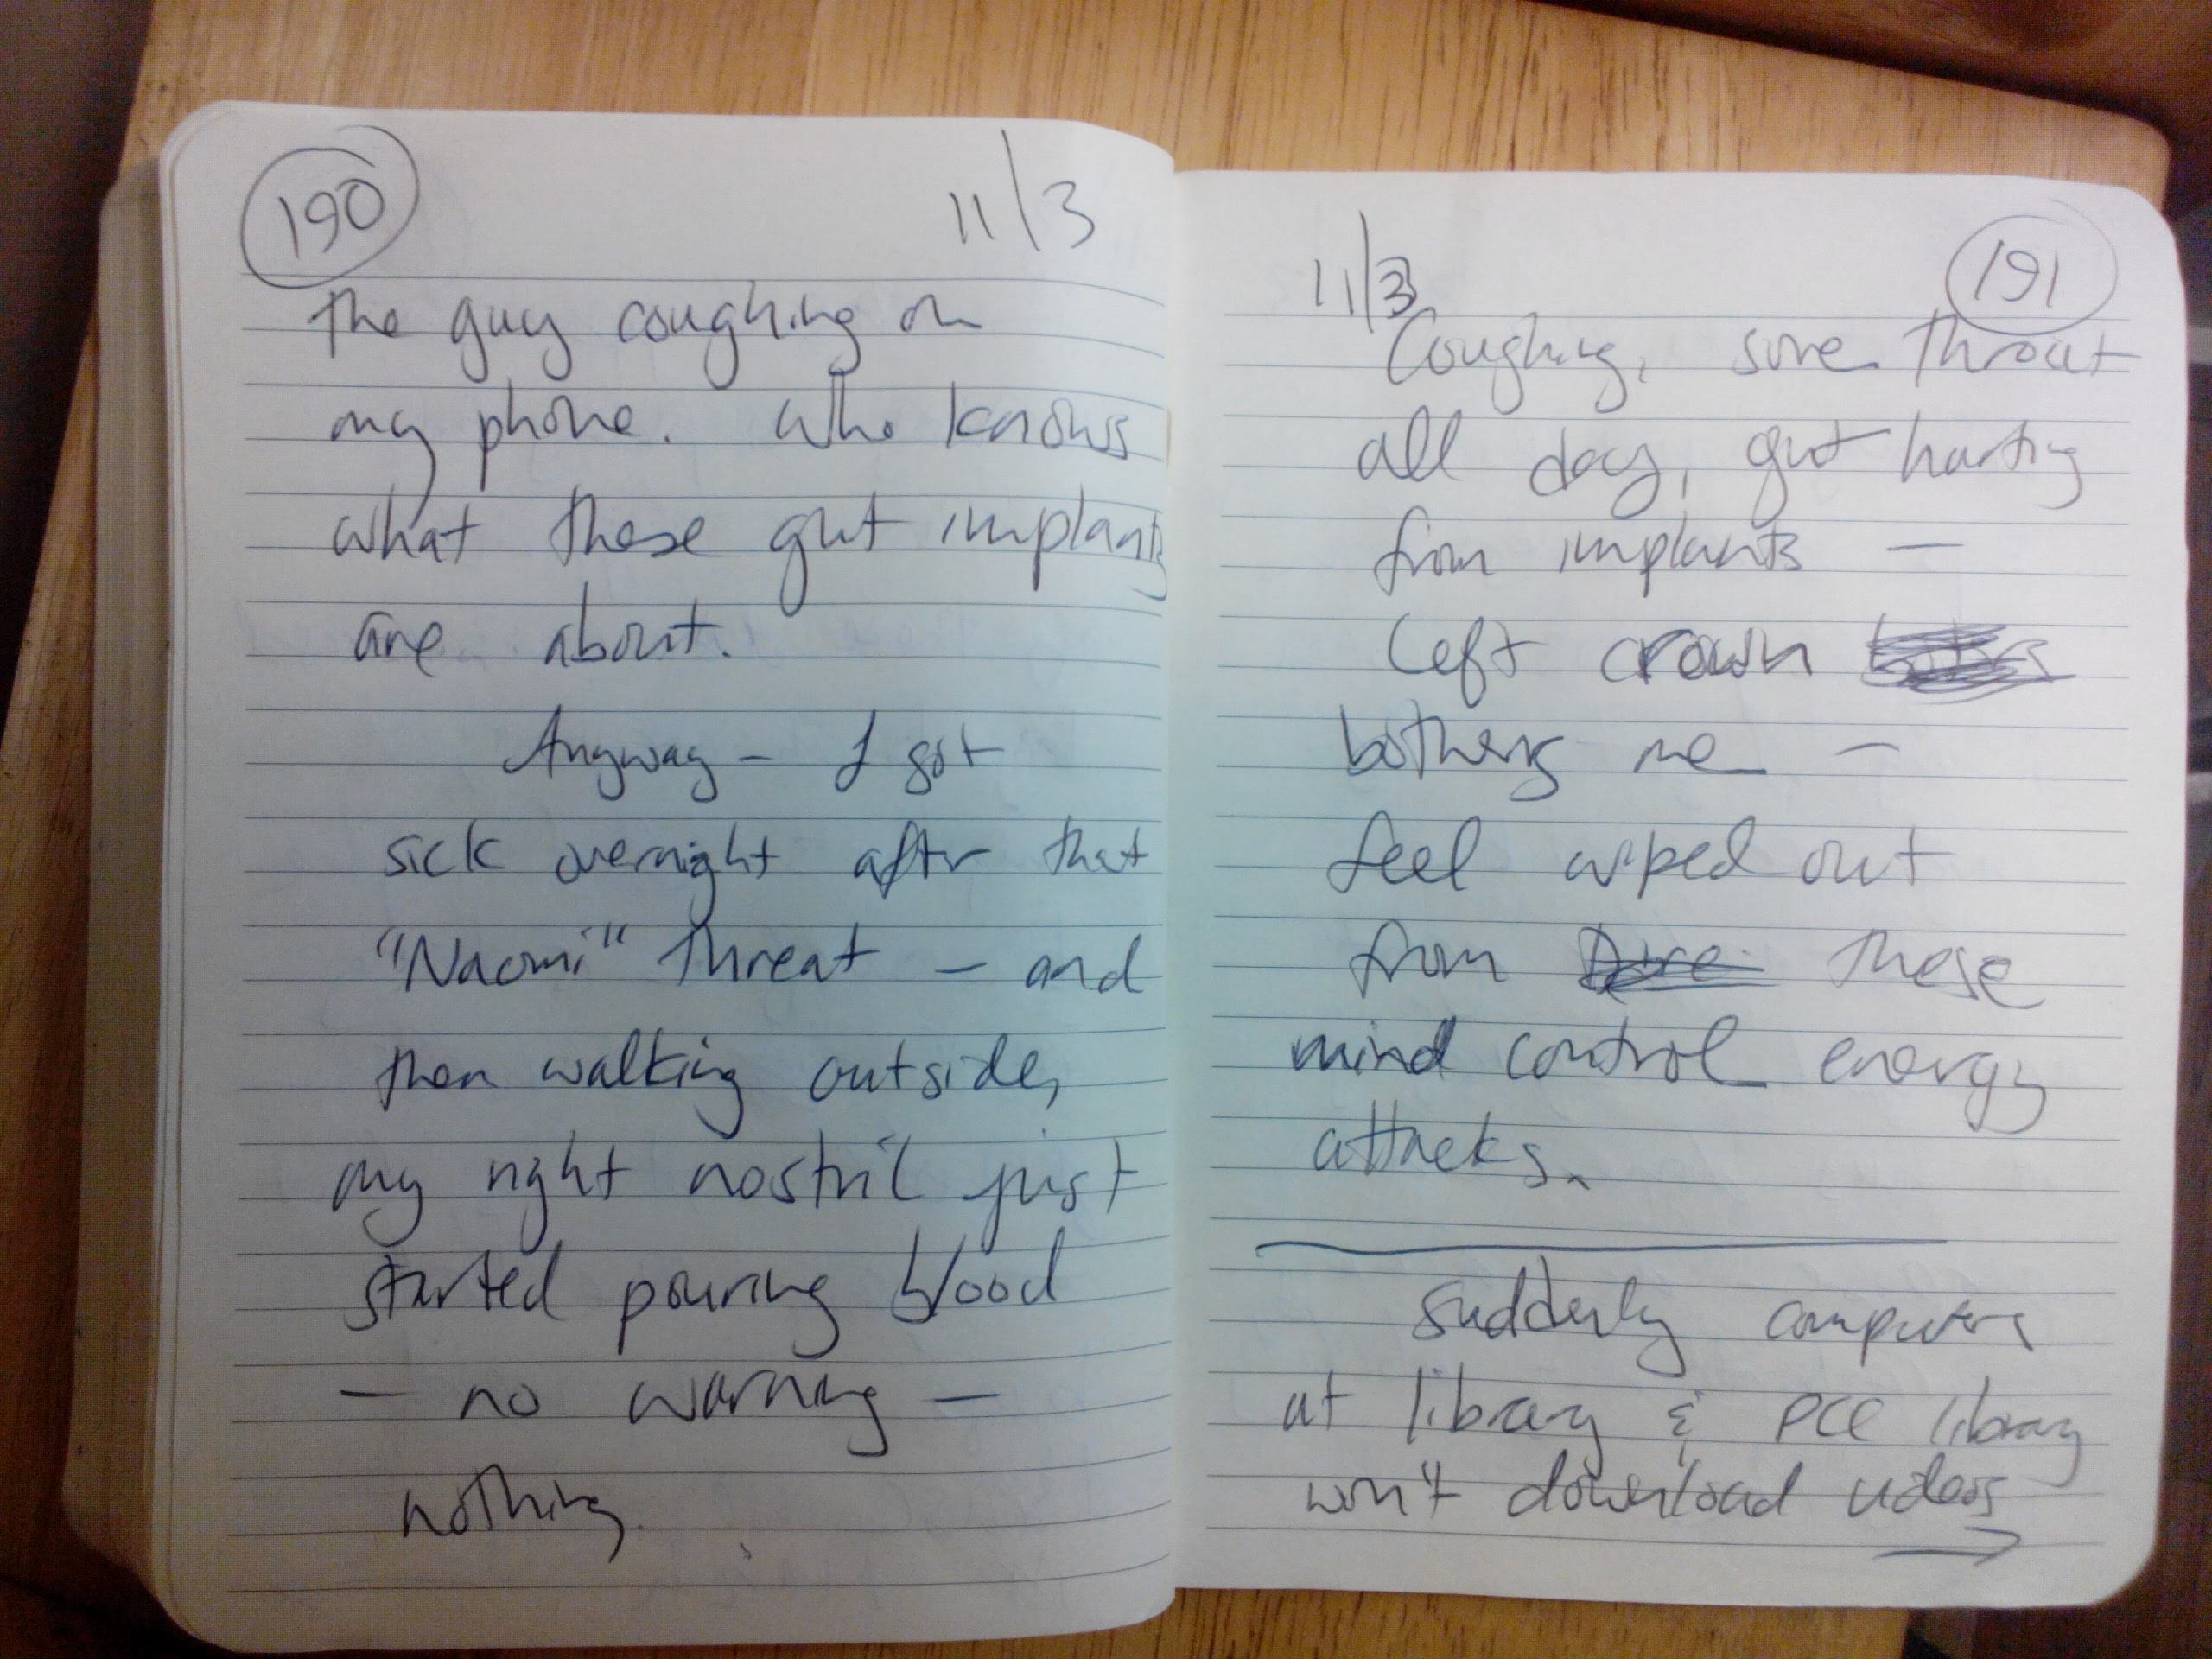 190
11/3
the guy coughing on
my phone. Who knows
what these gut implants
are about.
Anyway – I got
sick overnight after that
"Naomi" threat – and
then walking outside,
my right nostril just
started pouring blood
– no warning –
nothing.
11/3
191
Coughing, sore throat
all day, gut hurting
from implants –
left crown
bothering me –
feel wiped out
from these
mind control energy
attacks.
Suddenly computers
at library & PCC library
won't download videos